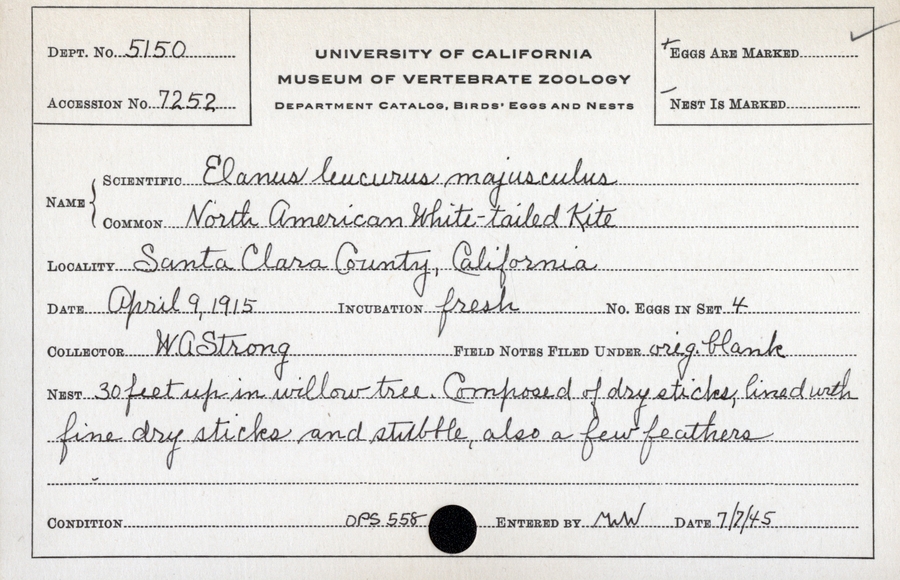 Dept. No. 5150
Accession No. 7252
UNIVERSITY OF CALIFORNIA
MUSEUM OF VERTEBRATE ZOOLOGY
Department Catalog, Birds' Eggs and Nests
+ Eggs Are Marked
- Nest Is Marked
Name { Scientific Elanus leucurus majusculus
Common North American White-tailed Kite
Locality Santa Clara County, California
Date April 9, 1915 Incubation fresh No. Eggs in Set 4
Collector W.A Strong Field Notes Filed Under orig. blank
Nest 30 feet up in willow tree. Composed of dry sticks, lined with
fine dry sticks and stubble, also a few feathers
Condition OPS 558 Entered by Date 7/7/45